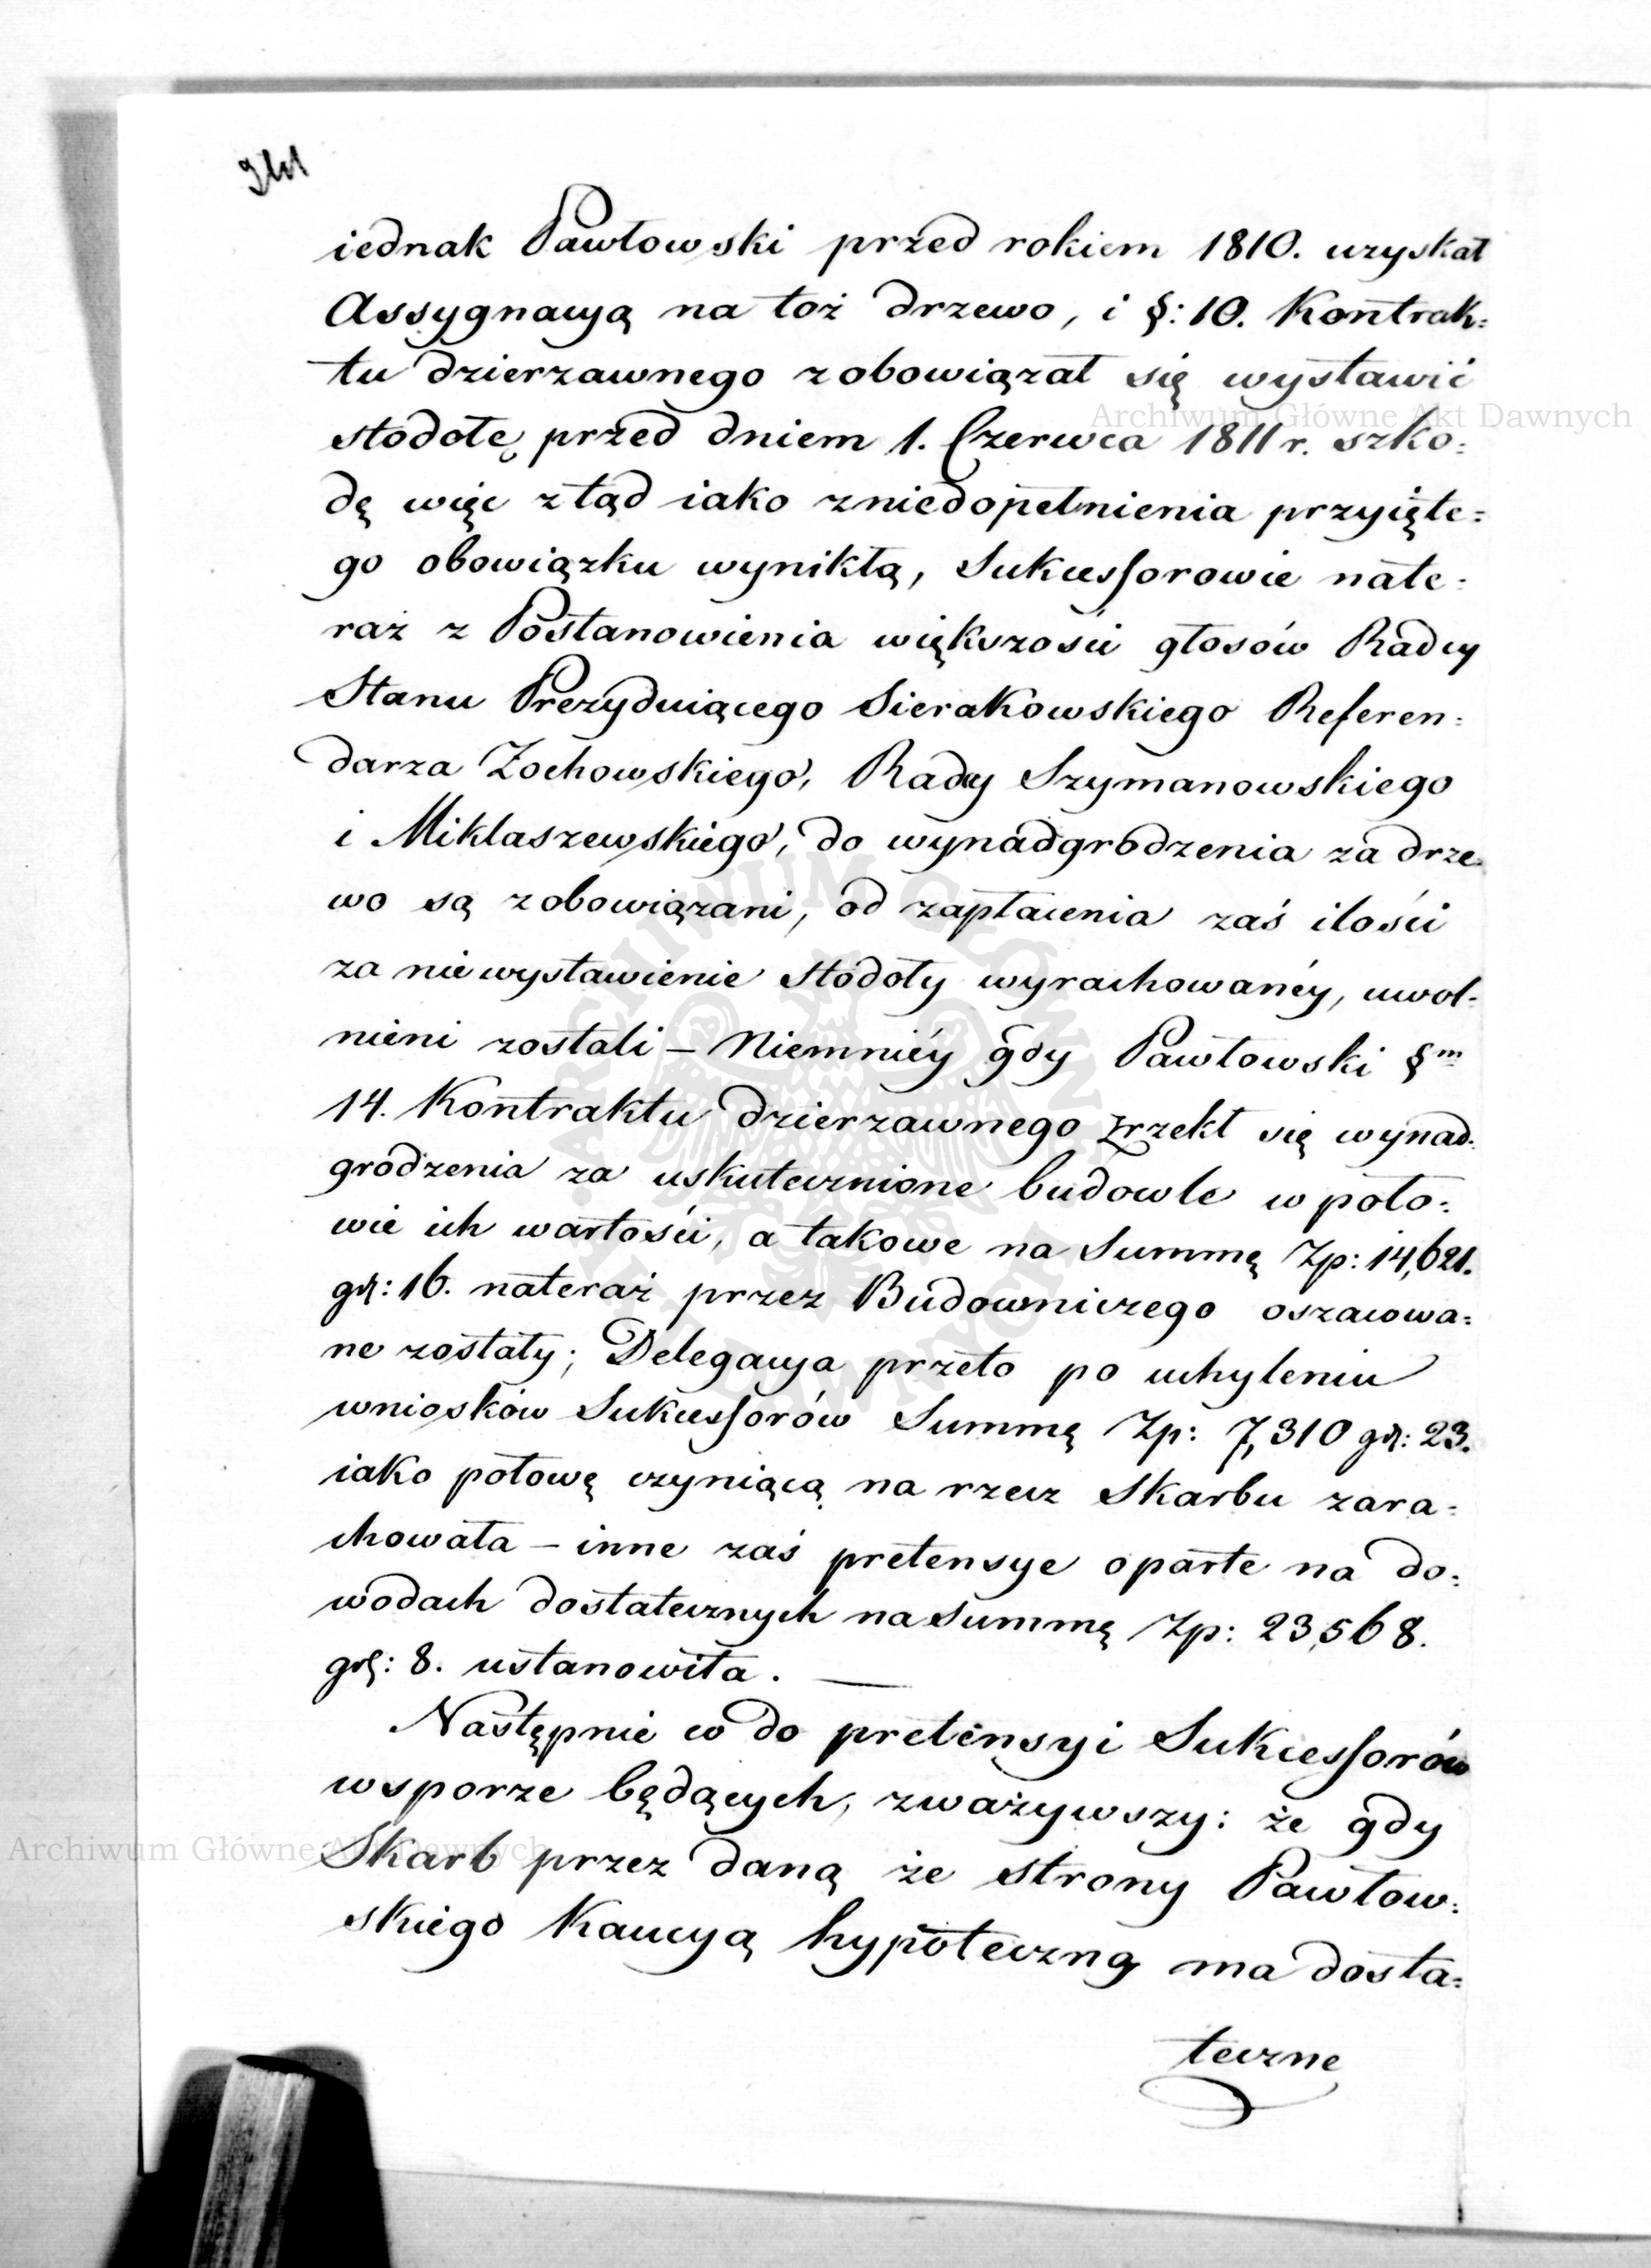 iednak Pawłowski przed rokiem 1810. uzyskał
Assygnacyą na toż drzewo, i §: 10. Kontrak=
tu dzierzawnego zobowiązał się wystawić
stodołę przed dniem 1. Czerwca 1811 r. szko=
dę więc ztąd iako z niedopełnienia przyięte=
go obowiązku wynikłą, Sukcessorowie nate=
raz z Postanowienia większości głosów Radcy
Stanu Prezyduiącego Sierakowskiego Referen=
darza Zochowskiego, Radcy Szymanowskiego
i Miklaszewskiego, do wynadgrodzenia za drze=
wo są zobowiązani, od zapłacenia zaś ilości
za niewystawienie stodoły wyrachowanéy, uwol=
nieni zostali – Niemniéy gdy Pawłowski §m
14. Kontraktu dzierzawnego zrzekł się wynad=
grodzenia za uskutecznione budowle w poło=
wie ich wartości, a takowe na Summę Zp: 14,621.
gr: 16. nateraz przez Budowniczego oszacowa=
ne zostały; Delegacya przeto po uchyleniu
wniosków Sukcessorów Summę Zp: 7,310 gr: 23.
iako połowę czyniącą na rzecz Skarbu zara=
chowała – inne zaś pretensye oparte na do=
wodach dostatecznych na Summę Zp: 23,568.
gr: 8. ustanowiła. —
Następnie co do pretensyi Sukcessorów
w sporze będących, zważywszy: że gdy
Skarb przez daną ze strony Pawłow=
skiego Kaucyą hypoteczną ma dosta=
teczne
Archiwum Główne Akt Dawnych
Archiwum Główne Akt Dawnych